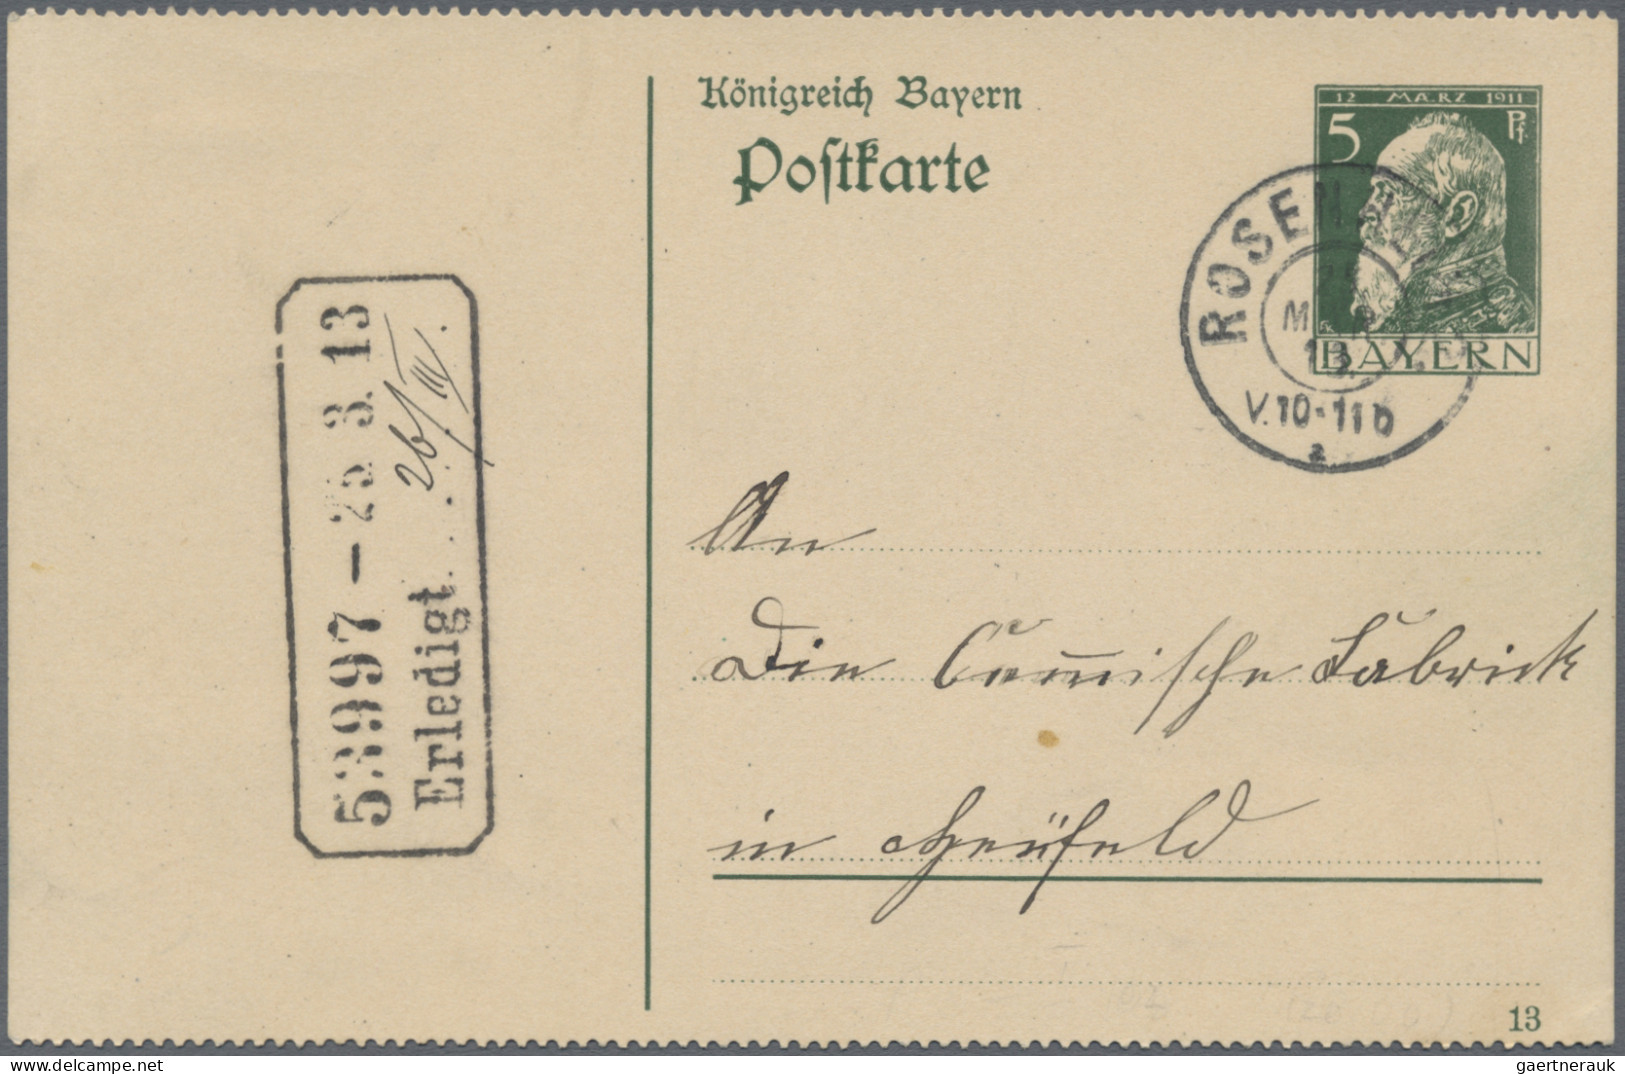 Königreich Bayern
Postkarte
12 MÄRZ 1911
5 Pf.
BAYERN
ROSEN
25
MÄR
13.
V.10-11
a
53997 - 25 3. 13
Erledigt. . . . 26/III.
An
Die Chemische Fabrick
in Heufeld
13
gaertnerauk